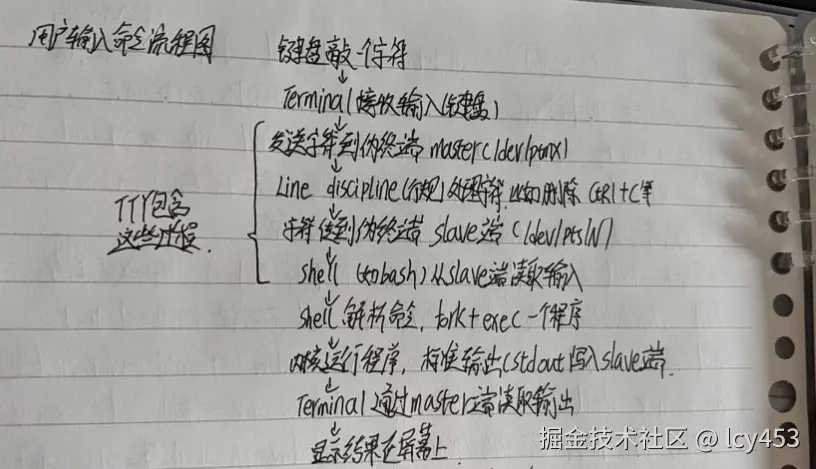 用户输入命令流程图
键盘敲一个字符
Terminal接收输入(键盘)
发送字符到伪终端 master(/dev/ptmx)
Line discipline(行规)处理字符,比如删除 Ctrl+C等
字符传到伪终端 slave端(/dev/pts/N)
TTY包含
这些过程.
shell (如bash)从slave端读取输入
shell 解析命令, fork+exec一个程序
内核运行程序, 标准输出(stdout)写入slave端.
Terminal 通过master端读取输出
显示结果在屏幕上
掘金技术社区 @ lcy453